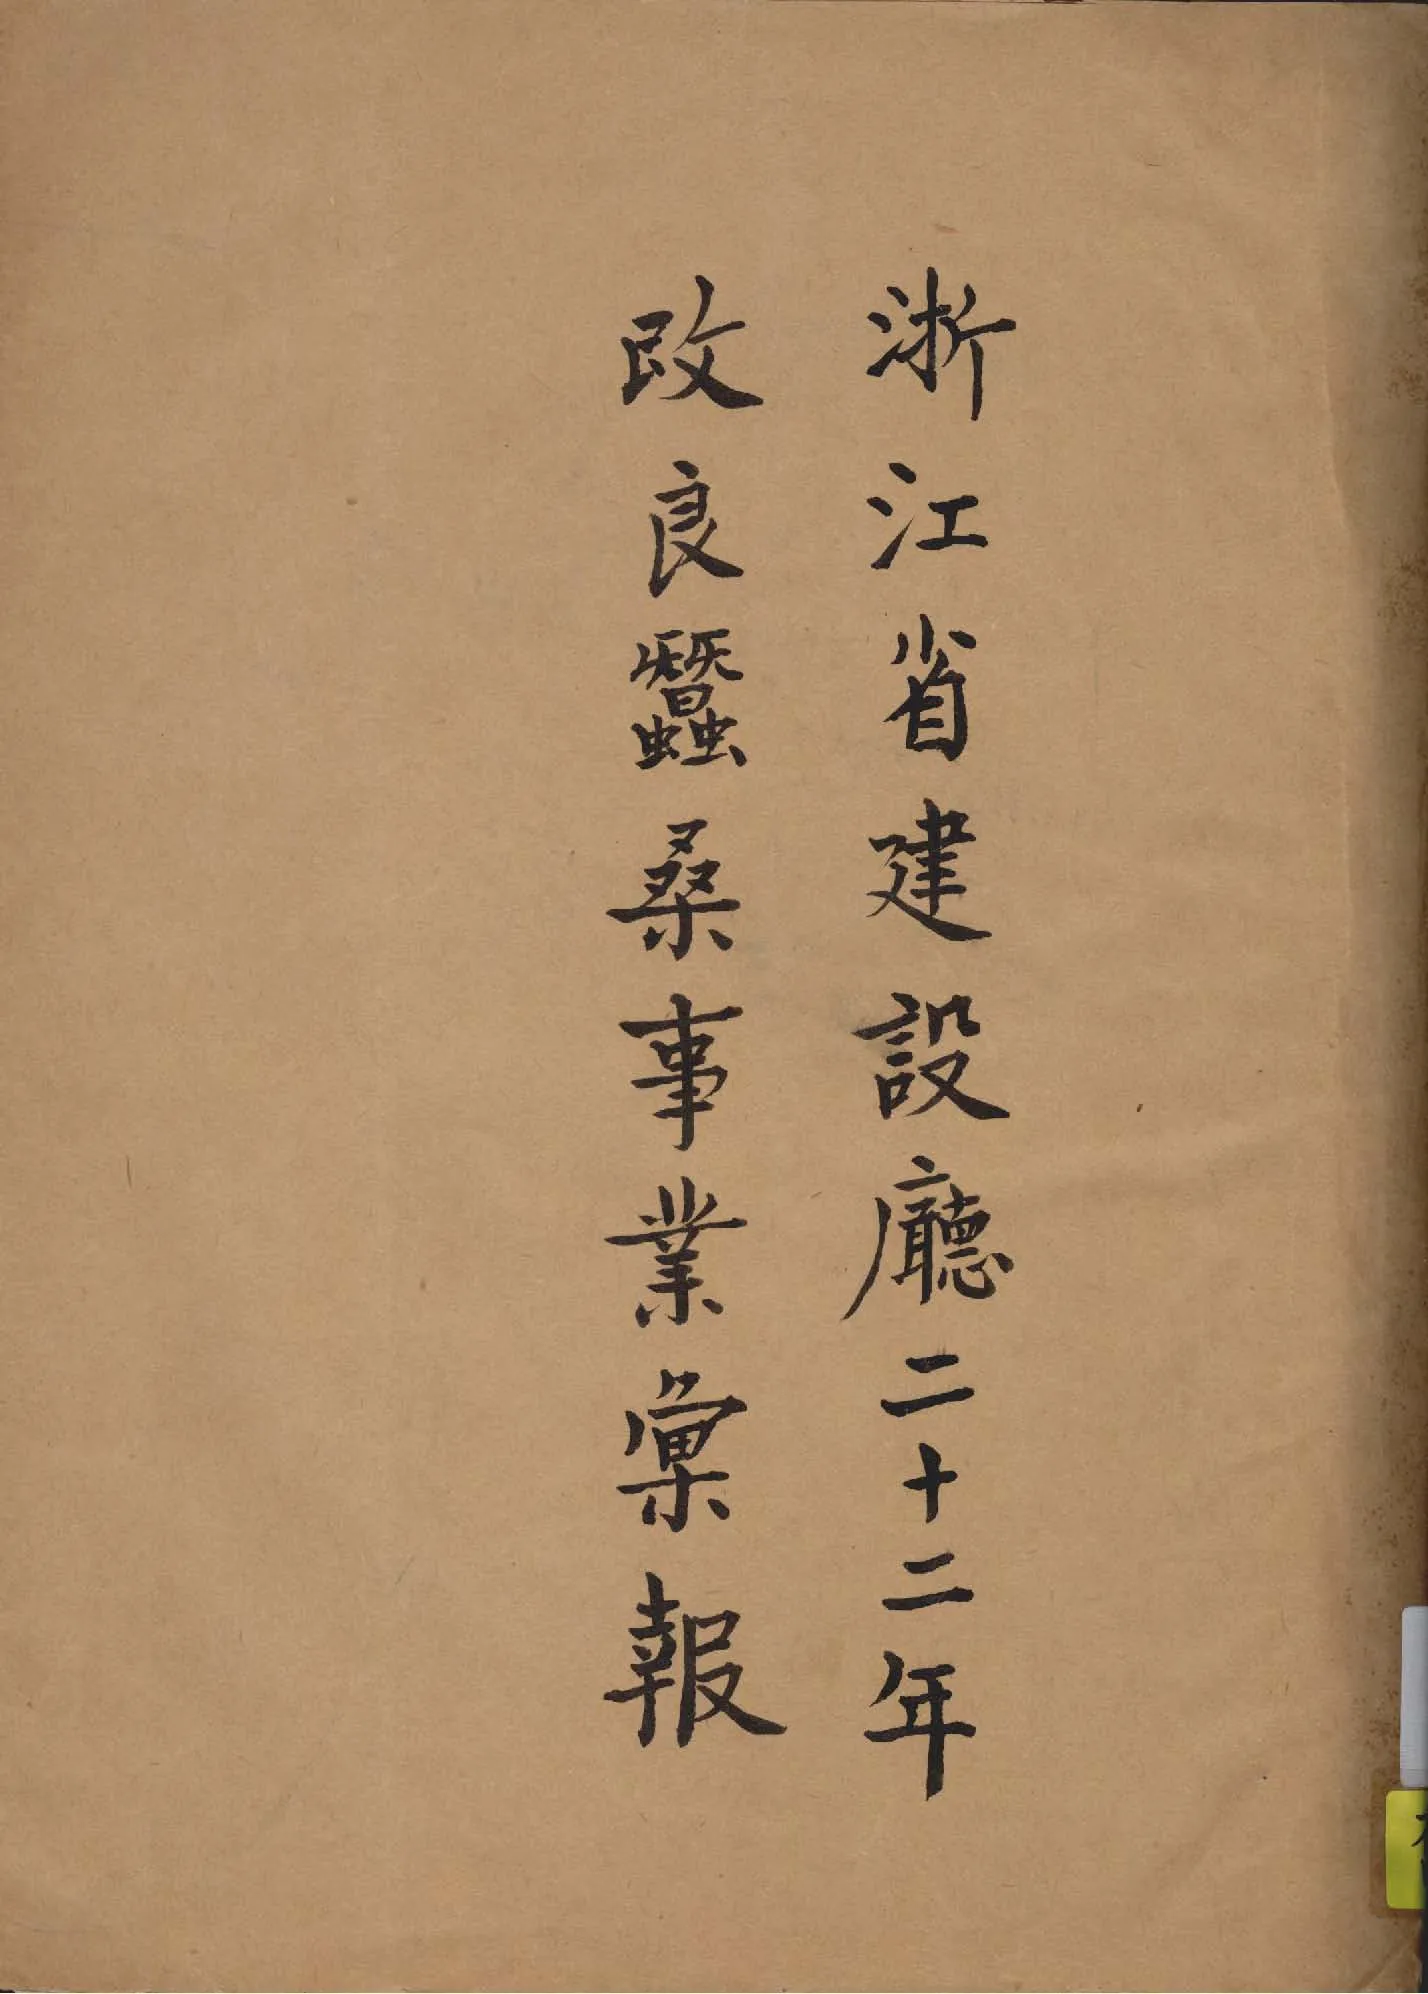 浙江省建設廳二十二年
改良蠶桑事業彙報